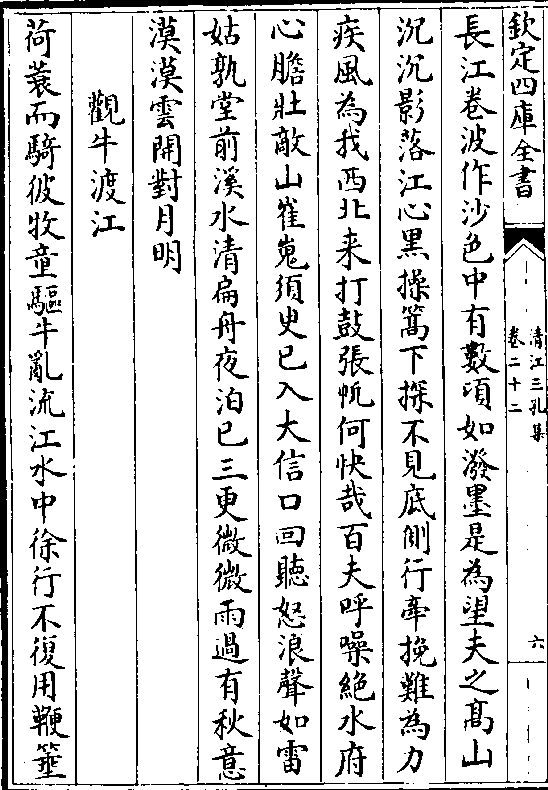 欽定四庫全書
清江三孔集
卷二十二
六
長江卷波作沙色中有數項如潑墨是為望夫之髙山
沉沉影落江心黒操篙下探不見底側行牽挽難為力
疾風為我西北来打鼓張帆何快哉百夫呼噪絶水府
心膽壯敵山崔嵬須臾已入大信口回聽怒浪聲如雷
姑孰堂前溪水清扁舟夜泊已三更微微雨過有秋意
漠漠雲開對月明
觀牛渡江
荷蓑而騎彼牧童驅牛亂流江水中徐行不復用鞭箠